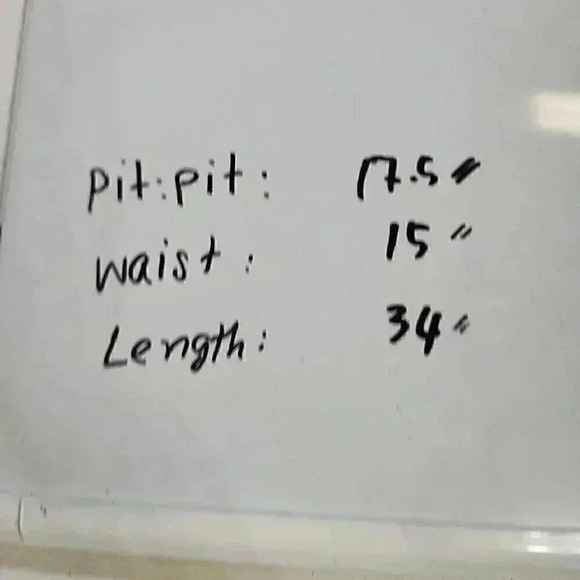 pit:pit: 17.5"
waist: 15"
Length: 34"